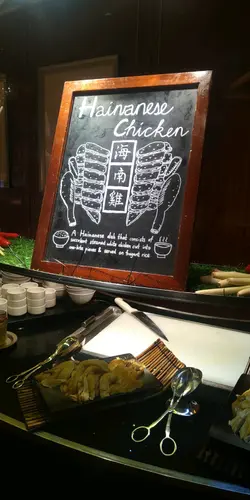 Hainanese
Chicken
海
南
雞
A Hainanese dish that consists of
succulent steamed white chicken cut into
one-bite pieces & served on fragrant rice